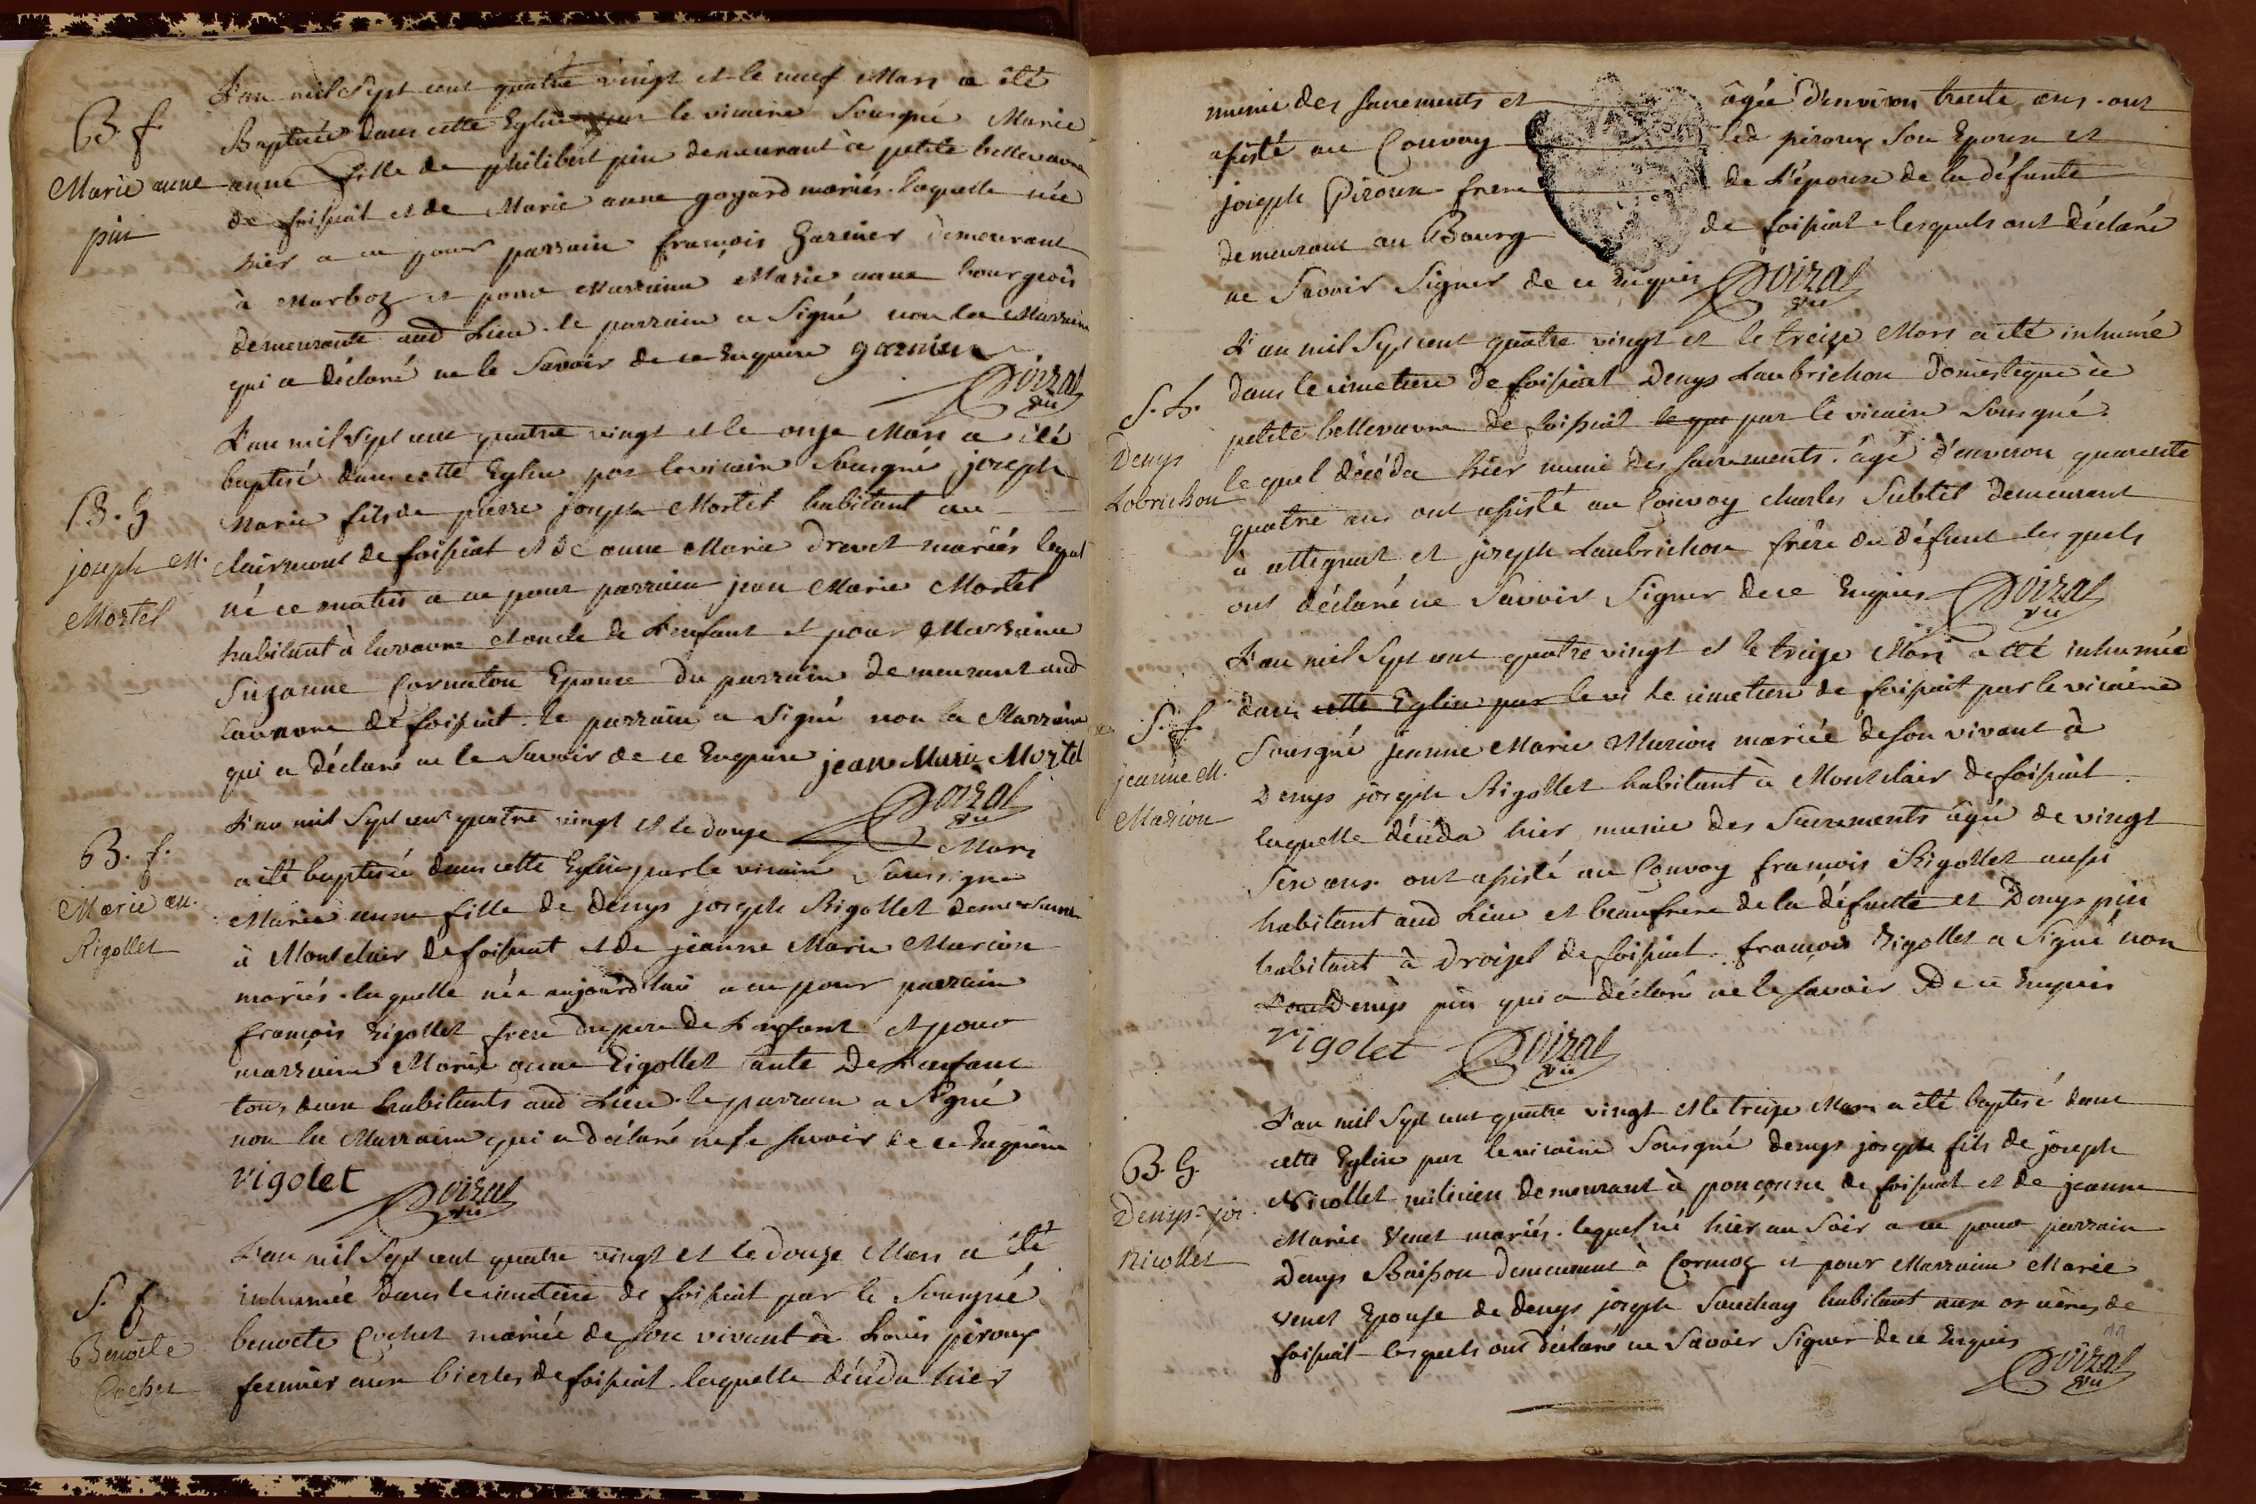 B. f.
Marie anne
pin
L'an mil Sept cent quatre vingt et le neuf Mars a été
Baptisée dans cette Eglise par le vicaire Sousigné Marie
anne fille de philibert pin demeurant à petite bellevavre
de foissiat et de Marie anne gogard mariés. laquelle née
hier a eu pour parrain françois Garnier demeurant
à Marboz et pour Marraine Marie anne bourgeois
demeurante aud Lieu. le parrain a Signé non la Marraine
qui a déclaré ne le Savoir de ce Enquise garnier
Doizat
vic
B. G
joseph M.
Mortel
L'an mil Sept cent quatre vingt et le onze Mars a été
baptisé dans cette Eglise par le vicaire Sousigné joseph
Marie fils de pierre joseph Mortel habitant au
clairmont de foissiat et de anne Marie Drevet mariés lequel
né ce matin a eu pour parrain jean Marie Mortel
habitant à lavavre et oncle de L'enfant et pour Marraine
Suzanne Cornaton Epouse du parrain demeurant aud
lavavre de foissiat. le parrain a Signé non la Marraine
qui a déclaré ne le Savoir de ce Enquise jean Marie Mortel
Doizat
vic
B. f.
Marie an.
Rigollet
L'an mil Sept cent quatre vingt et le douze Mars
a été baptisée dans cette Eglise par le vicaire Soussigné
Marie anne fille de Denys joseph Rigollet demeurant
à Montclair de foissiat et de jeanne Marie Marion
mariés. laquelle née aujourd'hui a eu pour parrain
françois Rigollet frere du pere de L'enfant et pour
marraine Marie anne Rigollet tante De L'enfant
tous deux habitants aud Lieu. le parrain a Signé
non la Marraine qui a déclaré ne le Savoir de ce Enquise
rigolet
Doizat
vic
S. f.
Benoite
Cochet
L'an mil Sept cent quatre vingt et le douze Mars a été
inhumée dans le cimetiere de foissiat par le Sousigné
benoite Cochet mariée de son vivant à Louis piroux
fermier aux bierles de foissiat. laquelle décéda hier
munie des sacrements et âgée d'environ trente ans. ont
assisté au Convoy led piroux Son Epoux et
joseph Piroux frere de L'époux de la défunte
demeurant au Bourg de foissiat. lesquels ont déclaré
ne Savoir Signer de ce Enquis Doizat
vic
S. h.
Denys
Lobrichon
L'an mil Sept cent quatre vingt et le treize Mars a été inhumé
dans le cimetiere de foissiat Denys Laubrichon Domestique à
petite bellevavre de foissiat le par le vicaire Sousigné.
lequel décéda hier muni des sacrements. âgé d'environ quarente
quatre ans ont assisté au Convoy charles Subtil demeurant
à attignat et joseph Laubrichon frère du défunt lesquels
ont déclaré ne Savoir Signer de ce Enquis Doizat
vic
S. f.
jeanne M.
Marion
L'an mil Sept cent quatre vingt et le treize Mars a été inhumée
dans cette Eglise par le vi le cimetiere de foissiat par le vicaire
Sousigné jeanne Marie Marion mariée de son vivant à
Denys joseph Rigollet habitant à Montclair de foissiat.
laquelle décéda hier munie des Sacrements âgée de vingt
Sex ans. ont assisté au Convoy françois Rigollet aussi
habitant aud Lieu et beaufrere de la défunte et Denys pin
habitant à Droizel de foissiat. françois Rigollet a Signé non
Denys pin qui a déclaré ne le savoir De ce Enquis
rigolet Doizat
vic
B. G.
Denys-jos.
Nicollet
L'an mil Sept cent quatre vingt et le treize Mars a été baptisé dans
cette Eglise par le vicaire Sousigné denys joseph fils de joseph
Nicollet milicien demeurant à ponçonne de foissiat et de jeanne
Marie Venet mariés. lequel né hier au Soir a eu pour parrain
Denys Boisson demeurant à Cormoz et pour Marraine Marie
Venet Epouse de denys joseph Souchay habitant aux de
foissiat lesquels ont déclaré ne Savoir Signer de ce Enquis
Doizat
vic